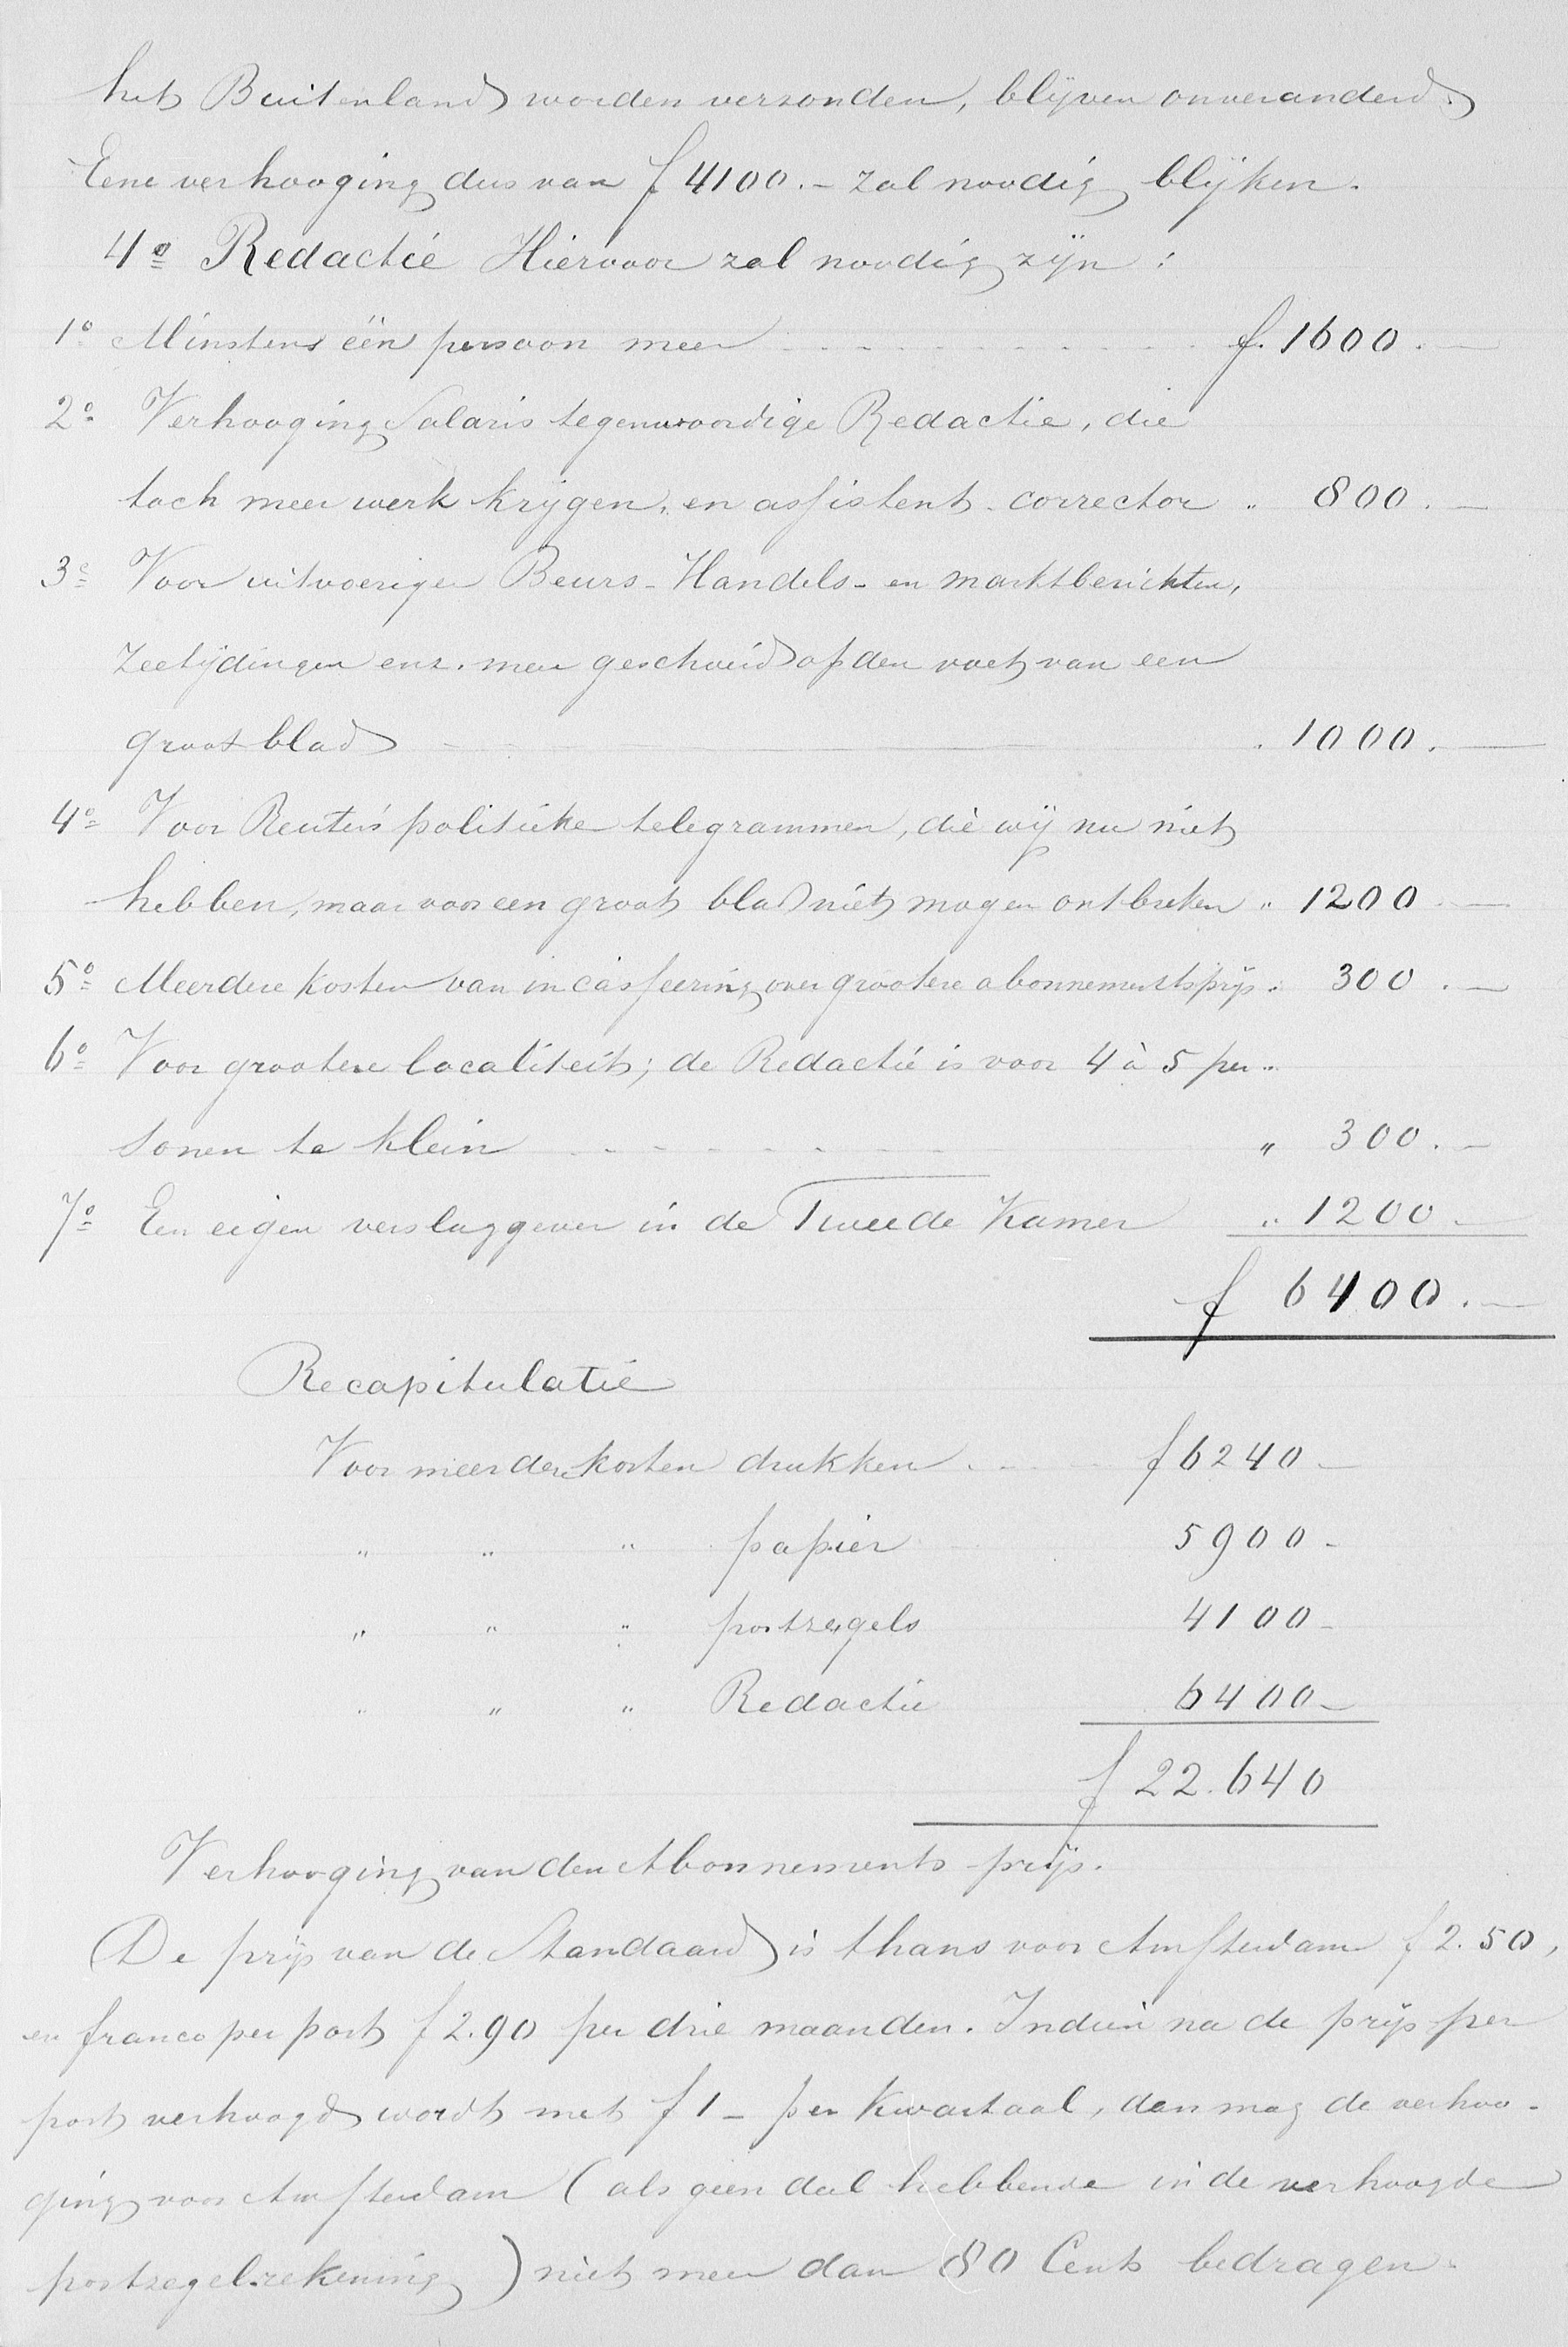 het Buitenland worden verzonden, blijven onveranderd.
Eene verhooging dus van f 4100.- zal noodig blijken.
4o Redactie Hiervoor zal noodig zijn:
1o Minstens één persoon meer - - - - - - - - - - - f. 1600.-
2o Verhooging Salaris tegenwoordige Redactie, die
toch meer werk krijgen, en assistent-corrector „ 800.-
3o Voor uitvoeriger Beurs-Handels- en marktberichten,
Zeetijdingen enz. meer geschoeid op den voet van een
groot blad - - - . 1000.-
4o Voor Reuter's politieke telegrammen, die wij nu niet
hebben, maar voor een groot blad niet mogen ontbreken „ 1200.-
5o Meerdere kosten van incasseering over grootere abonnementsprijs „ 300.-
6o Voor grootere localiteit; de Redactie is voor 4 à 5 per-
sonen te klein - - - - - - „ 300.-
7o Een eigen verslaggever in de Tweede Kamer „ 1200.-
f 6400.-
Recapitulatie
Voor meerdere kosten drukken - - f 6240-
„ „ „ papier 5900-
„ „ „ postzegels 4100-
„ „ „ Redactie 6400-
f 22.640
Verhooging van den Abonnements prijs.
De prijs van de Standaard is thans voor Amsterdam f 2.50,
en franco per post f 2.90 per drie maanden. Indien na de prijs per
post verhoogd wordt met f 1- per kwartaal, dan mag de verhoo-
ging voor Amsterdam (als geen deel hebbende in de verhoogde
postzegelrekening) niet meer dan 80 Cents bedragen.